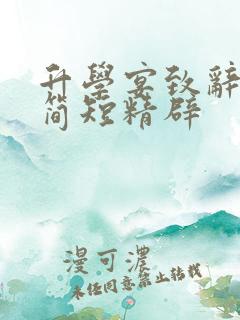 升學宴致辭
简短精辟
漫可濃
未经同意禁止转载